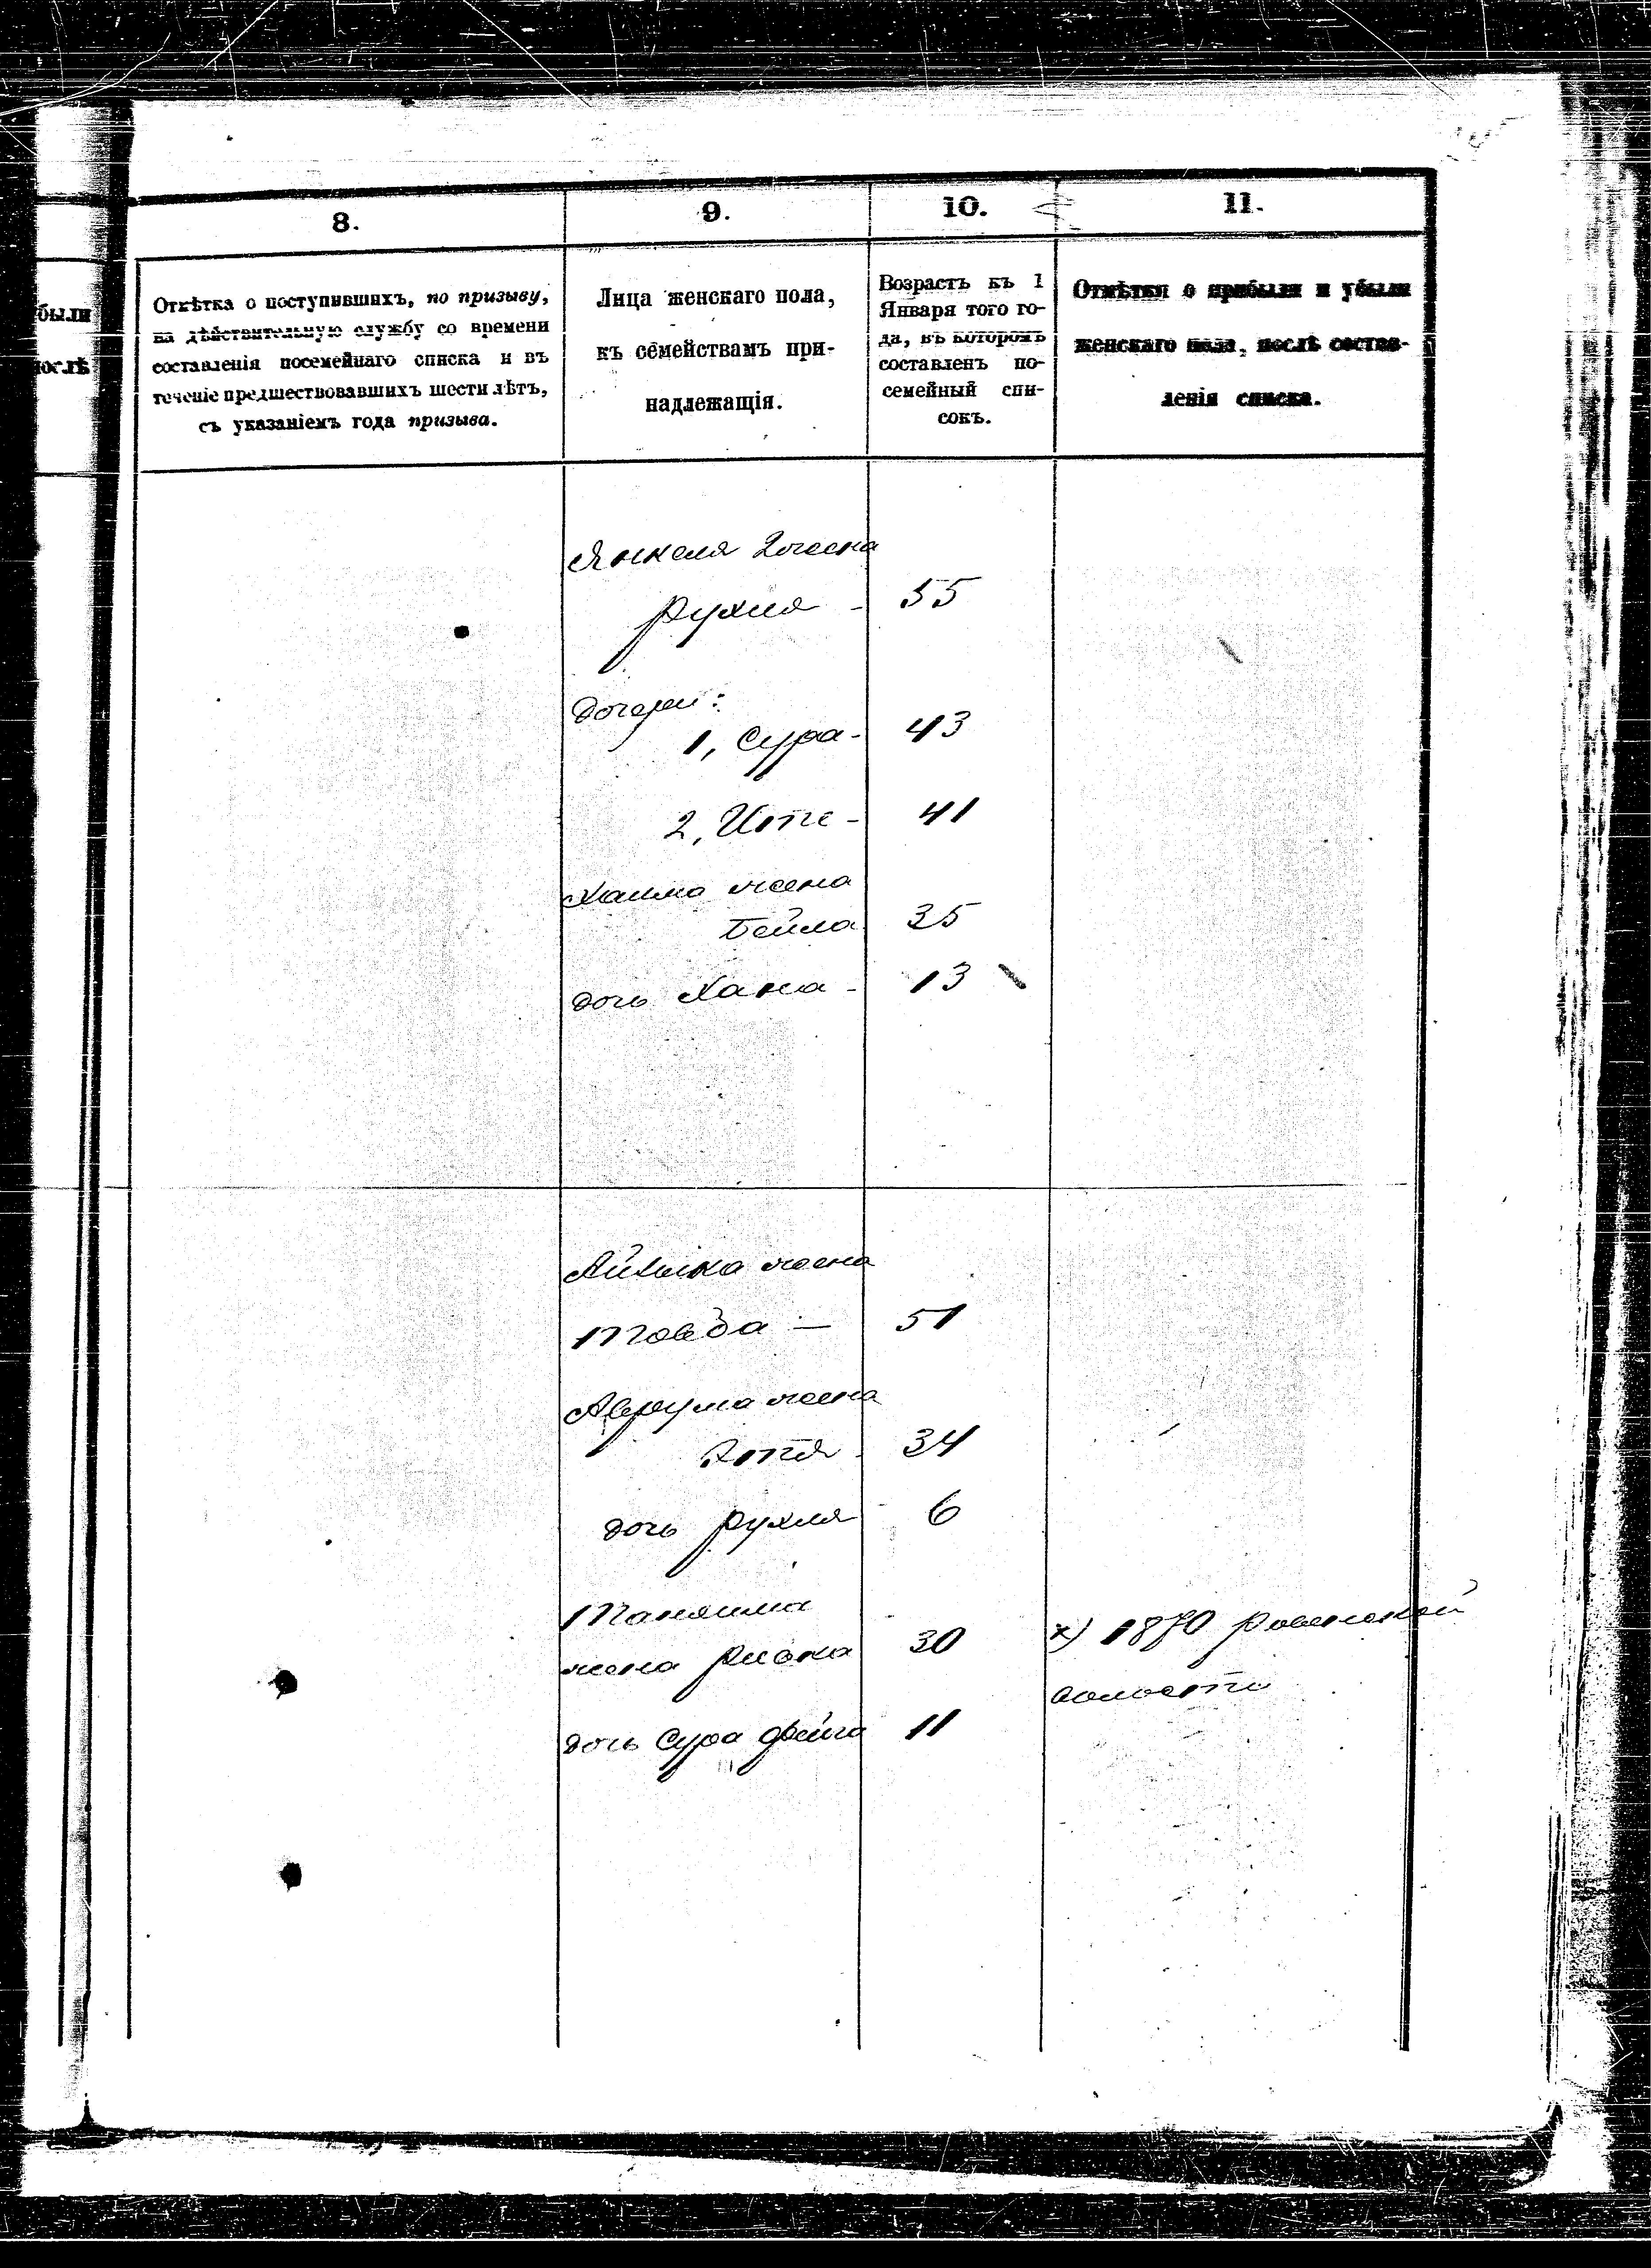 были
послѣ
8.
9.
10.
11.
Отмѣтка о поступившихъ, по призыву,
на дѣйствительную службу со времени
составленія посемейнаго списка и въ
теченіе предшествовавшихъ шести лѣтъ,
съ указаніемъ года призыва.
Лица женскаго пола,
къ семействамъ при-
надлежащія.
Возрастъ къ 1
Января того го-
да, въ которомъ
составленъ по-
семейный спи-
сокъ.
Отмѣтки о прибыли и убыли
женскаго пола, послѣ состав-
ленія списка.
Янкеля 2 жена
Рухля - 55
Дочери:
1, Сура - 43
2, Ите - 41
Хаима жена
Бейла 35
дочь Хана - 13
Айзика жена
51
Аврума жена
Этя - 34
дочь Рухля 6
жена 30
х) 1870
волости
дочь Сура Фейга 11